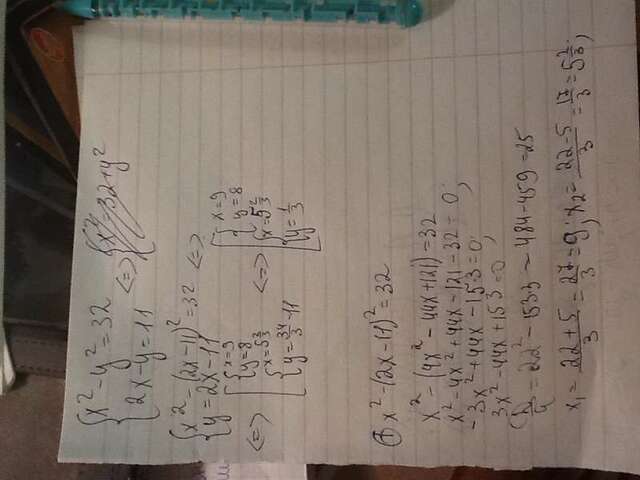 {x² - y² = 32
{2x - y = 11 <=> {x² = 32 + y²
{x² - (2x - 11)² = 32 <=>
{y = 2x - 11
<=> [ {x = 9
{y = 8
{x = 5 2/3
{y = 34/3 - 11
<=> [ {x = 9
{y = 8
{x = 5 2/3
{y = 1/3
x² - (2x - 11)² = 32
x² - (4x² - 44x + 121) = 32
x² - 4x² + 44x - 121 - 32 = 0;
- 3x² + 44x - 153 = 0;
3x² - 44x + 153 = 0
D/4 = 22² - 153·3 = 484 - 459 = 25
x₁ = (22 + 5)/3 = 27/3 = 9; x₂ = (22 - 5)/3 = 17/3 = 5 2/3;